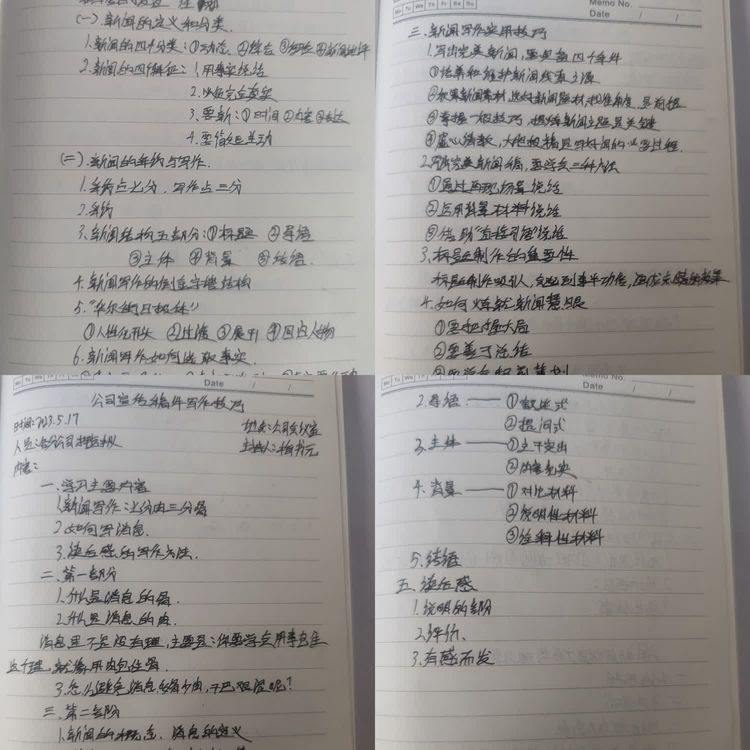 (一)、新闻的定义和分类.
1.新闻的四个分类:①动态 ②综合 ③经验
2.新闻的四个特征:1.用事实说话
2.必须完全真实
3.要新:①时间 ②内容
4.要简短生动
(二)、新闻的采访与写作.
1.采访占七分,写作占三分
2.采访
3.新闻结构五部分:①标题 ②导语
③主体 ④背景 ⑤结语.
4.新闻写作的倒金字塔结构
5."华尔街日报体"
①人性化开头 ②过渡 ③展开 ④回应人物
6.新闻写作如何选取事实.
Mo Tu We
Memo No.
Date / /
三.新闻写作实用技巧
1.写出完美新闻,要具备四个条件
①培养和维护新闻线索上源
②收集新闻素材,选好新闻题材,找准角度,是前提
③掌握一般技巧,提炼新闻主题是关键
④虚心请教,大胆投稿是写好新闻的必要过程.
2.写完美新闻稿,要学会三种方法
①通过再现场景说话
②运用背景材料说话
③借助"直接引语"说话
3.标题制作的重要性
标题制作吸引人,
4.如何炼就新闻慧眼
①要把握大局
②要善于总结
Mo Tu We Th Fr Sa Su
Date / /
公司宣传稿件写作技巧
时间:2023.5.17
地点:公司会议室
内容:
一、学习主要内容
1.新闻写作:七分肉三分骨
2.如何写消息.
3.读后感的写作方法.
二、第一部分
1.什么是消息的骨.
2.什么是消息的肉.
消息里不是没有理,主要是:你要学会用事包住
这个理,就像用肉包住骨.
3.怎么避免消息骨多肉少,干巴艰涩呢?
三、第二部分
1.新闻的概念、消息的定义
Memo No.
Date / /
2.导语 —— ①叙述式
②提问式
3.主体 —— ①主干突出
②内容充实
4.背景 —— ①对比材料
②说明性材料
③注释性材料
5.结语
五、读后感
1.说明的部分
2.评价、
3.有感而发